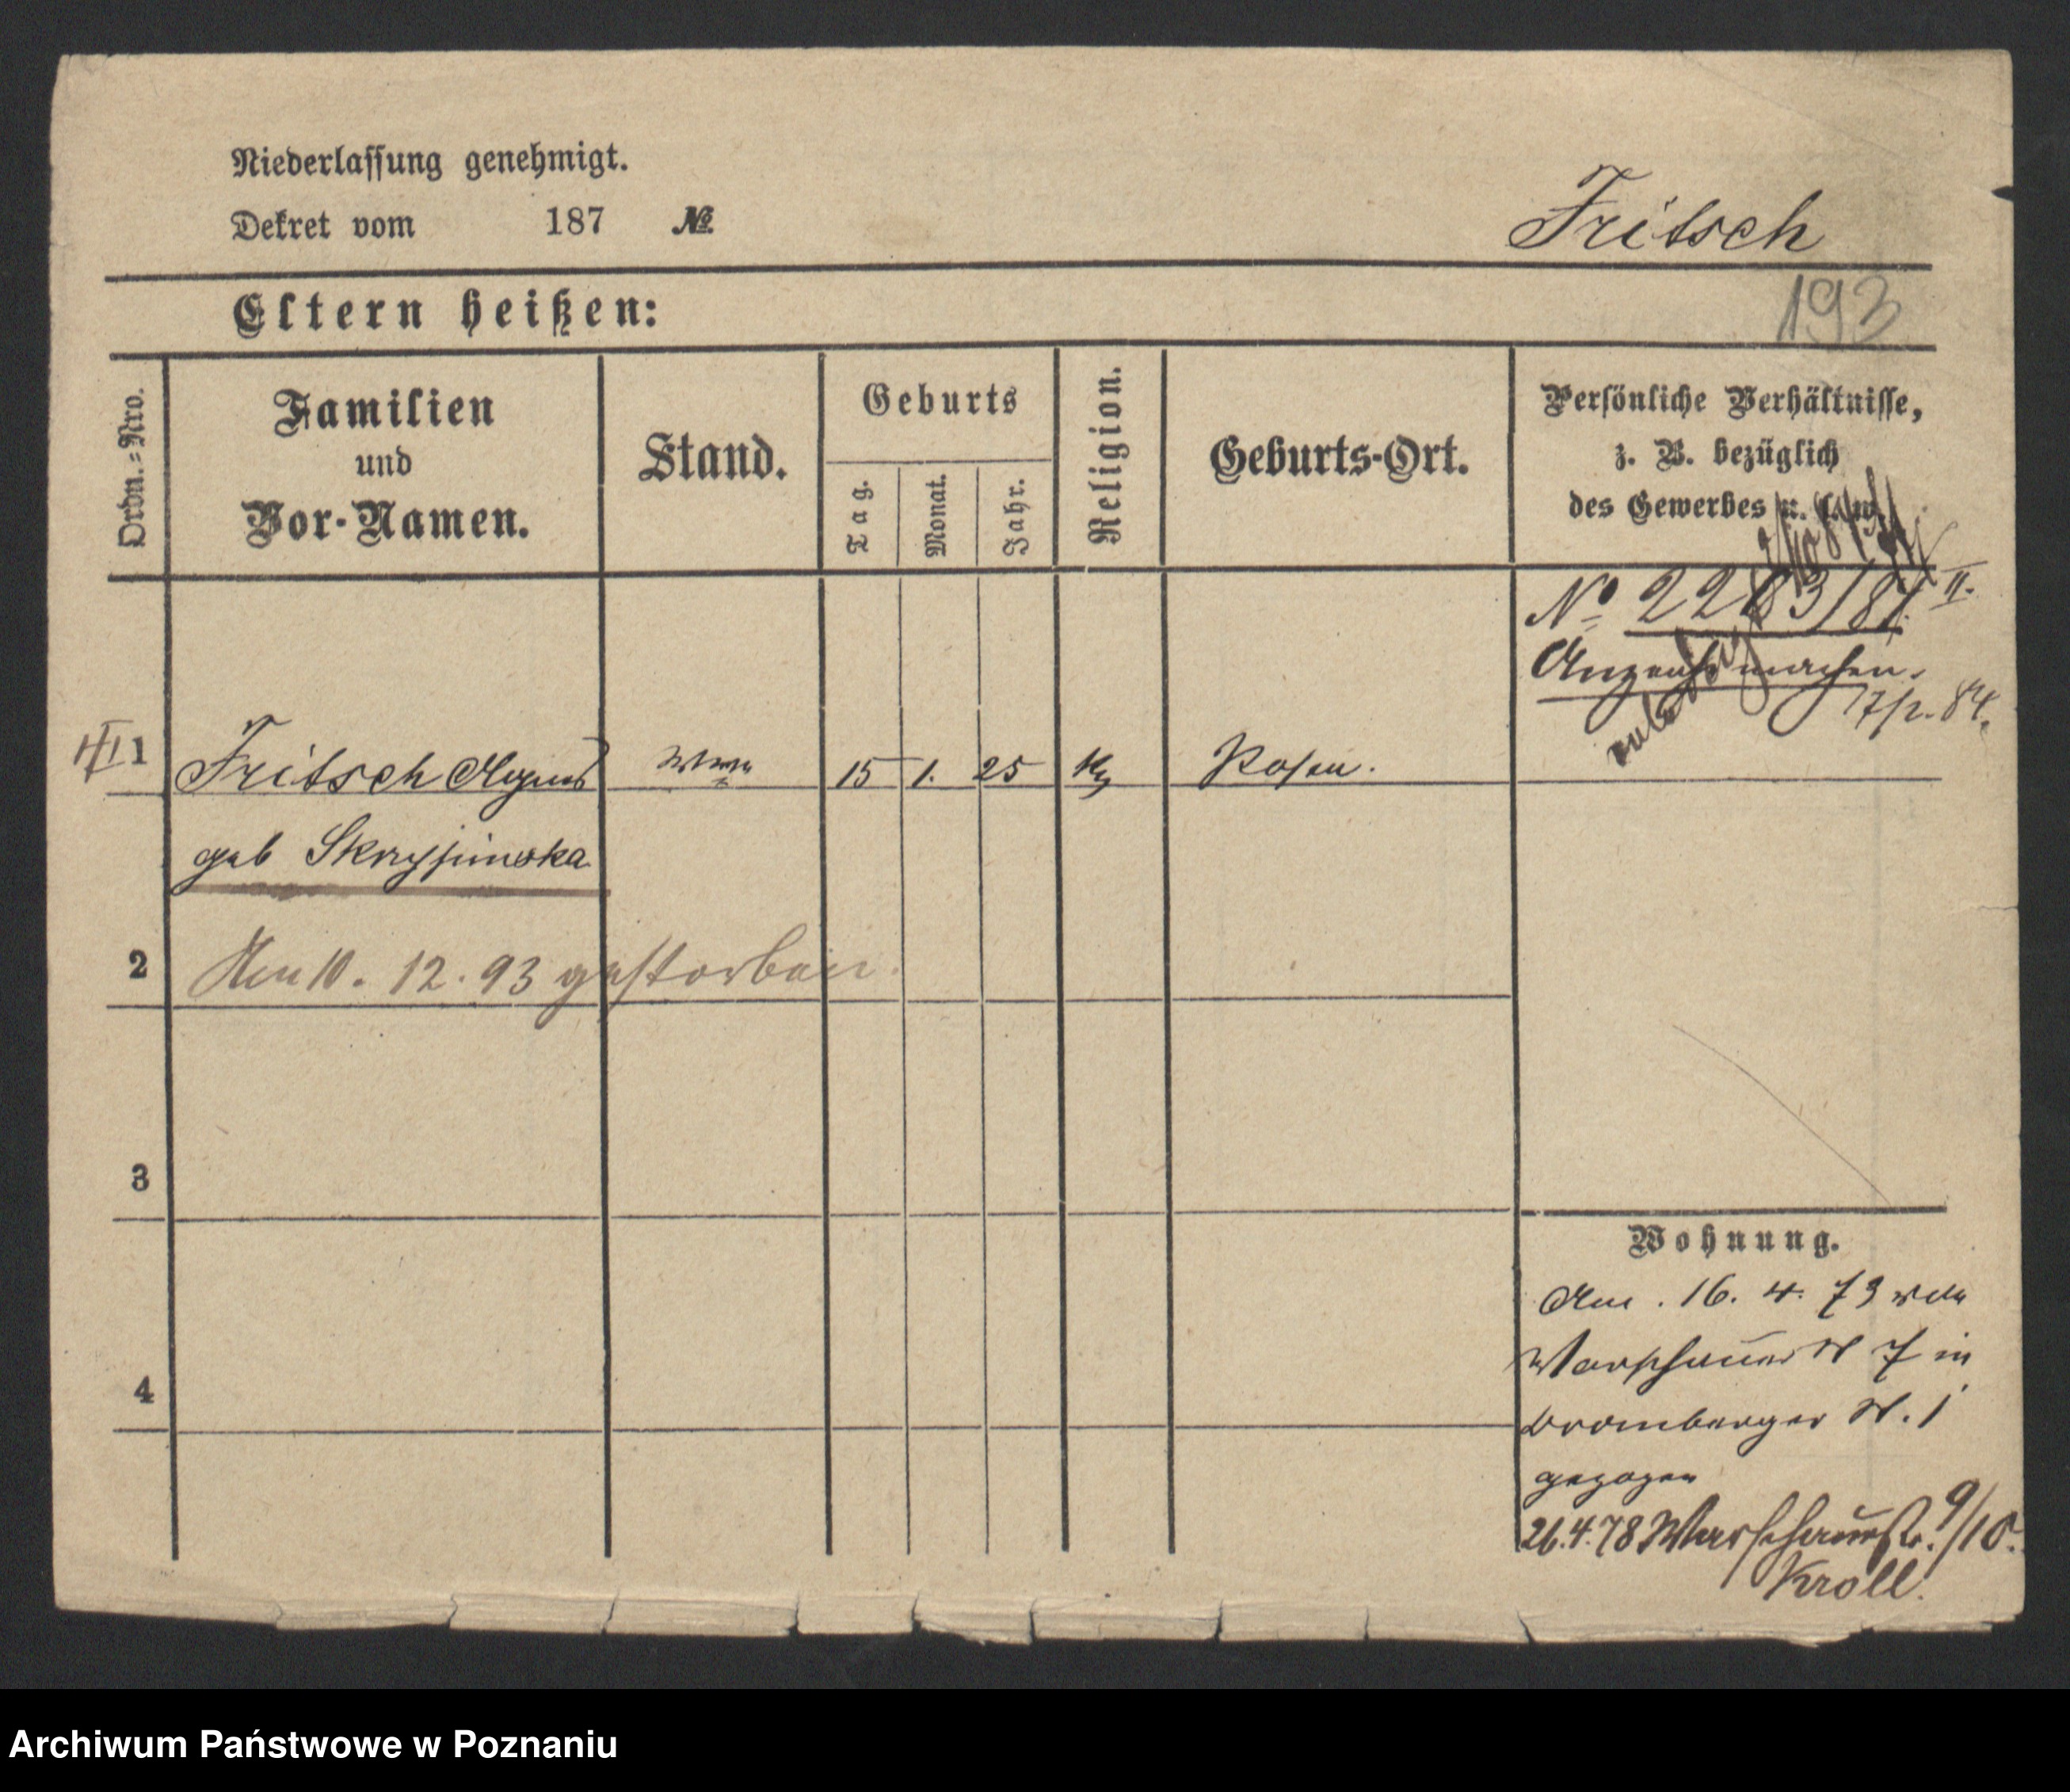 Niederlassung genehmigt.
Dekret vom 187 №
Fritsch
Eltern heißen:
193
Ordn.-Nro.
Familien
und
Vor-Namen.
Stand.
Geburts
Tag.
Monat.
Jahr.
Religion.
Geburts-Ort.
Persönliche Verhältnisse,
z. B. bezüglich
des Gewerbes u. s. w.
No 2283/84 II.
machen.
84.
1 Fritsch Agnes 15 1. 25 Posen.
geb
2 Am 10. 12. 93 gestorben.
3
4
Wohnung.
Am . 16. 4. 73 von
Warschauer St 7 in
Bromberger St. 1
gezogen
26.4.78 Warschauerstr. 9/10.
Kroll.
Archiwum Państwowe w Poznaniu